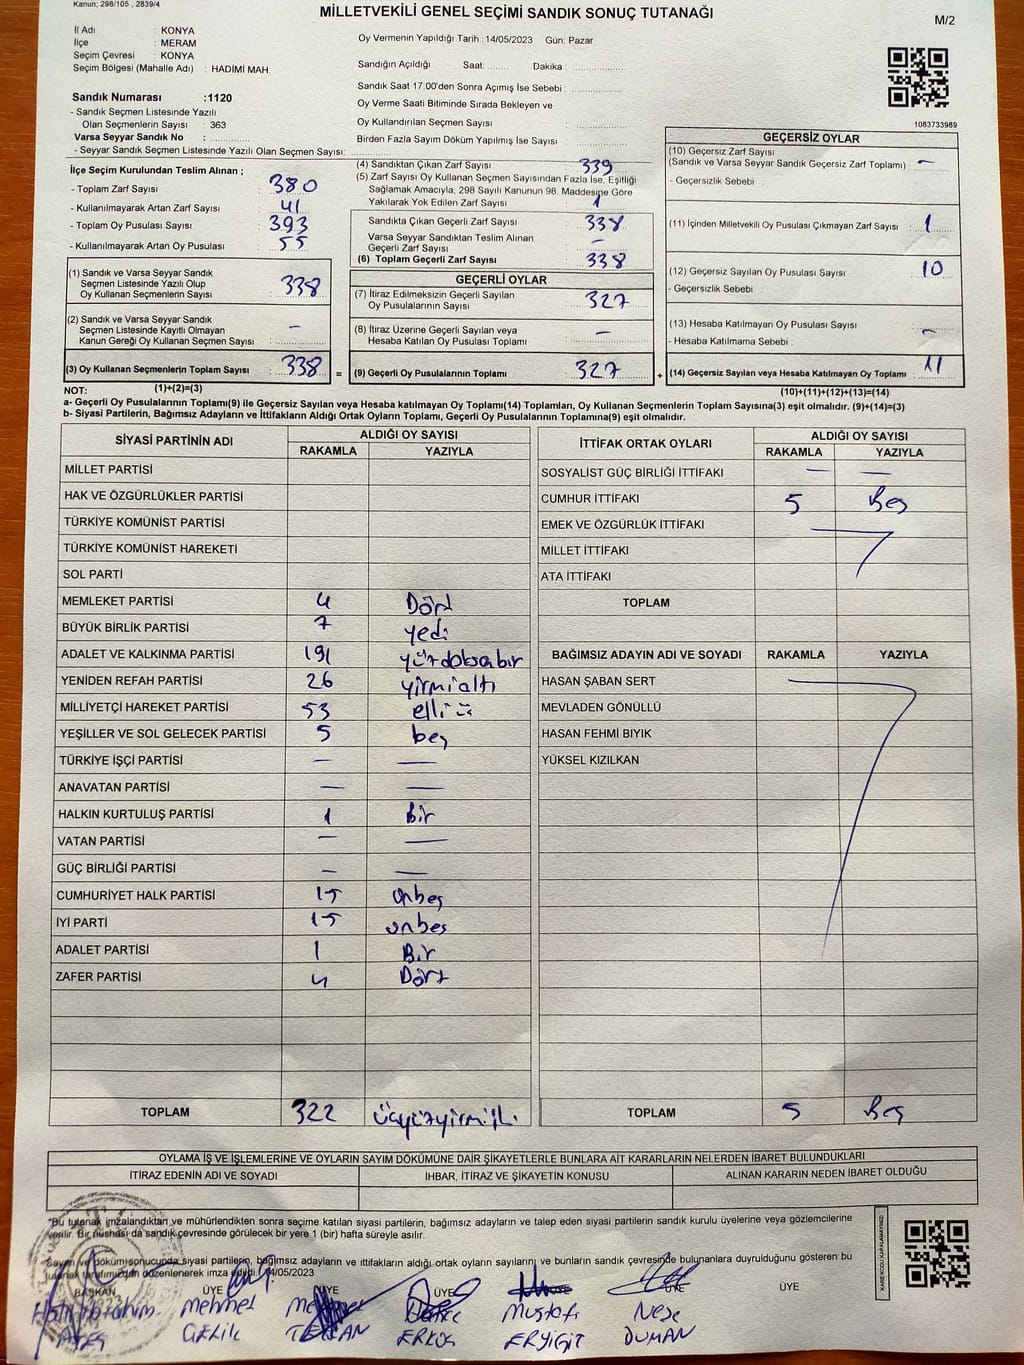 Kanun; 298/105 , 2839/4
MİLLETVEKİLİ GENEL SEÇİMİ SANDIK SONUÇ TUTANAĞI
M/2
İl Adı : KONYA
İlçe : MERAM
Seçim Çevresi : KONYA
Seçim Bölgesi (Mahalle Adı) : HADİMİ MAH.
Oy Vermenin Yapıldığı Tarih :14/05/2023 Gün: Pazar
Sandığın Açıldığı Saat: Dakika :
Sandık Saat 17:00'den Sonra Açımış İse Sebebi :
Oy Verme Saati Bitiminde Sırada Bekleyen ve
Oy Kullandırılan Seçmen Sayısı :
Birden Fazla Sayım Döküm Yapılmış İse Sayısı :
Sandık Numarası :1120
- Sandık Seçmen Listesinde Yazılı
Olan Seçmenlerin Sayısı : 363
Varsa Seyyar Sandık No :
- Seyyar Sandık Seçmen Listesinde Yazılı Olan Seçmen Sayısı:
1083733989
İlçe Seçim Kurulundan Teslim Alınan ;
- Toplam Zarf Sayısı : 380
- Kullanılmayarak Artan Zarf Sayısı : 41
- Toplam Oy Pusulası Sayısı : 393
- Kullanılmayarak Artan Oy Pusulası : 55
(1) Sandık ve Varsa Seyyar Sandık
Seçmen Listesinde Yazılı Olup
Oy Kullanan Seçmenlerin Sayısı : 338
(2) Sandık ve Varsa Seyyar Sandık
Seçmen Listesinde Kayıtlı Olmayan
Kanun Gereği Oy Kullanan Seçmen Sayısı : –
(3) Oy Kullanan Seçmenlerin Toplam Sayısı : 338 =
(4) Sandıktan Çıkan Zarf Sayısı : 339
(5) Zarf Sayısı Oy Kullanan Seçmen Sayısından Fazla İse, Eşitliği
Sağlamak Amacıyla; 298 Sayılı Kanunun 98. Maddesine Göre
Yakılarak Yok Edilen Zarf Sayısı : 1
Sandıkta Çıkan Geçerli Zarf Sayısı : 338
Varsa Seyyar Sandıktan Teslim Alınan
Geçerli Zarf Sayısı : –
(6) Toplam Geçerli Zarf Sayısı : 338
GEÇERLİ OYLAR
(7) İtiraz Edilmeksizin Geçerli Sayılan
Oy Pusulalarının Sayısı : 327
(8) İtiraz Üzerine Geçerli Sayılan veya
Hesaba Katılan Oy Pusulası Toplamı : –
(9) Geçerli Oy Pusulalarının Toplamı : 327 +
GEÇERSİZ OYLAR
(10) Geçersiz Zarf Sayısı
(Sandık ve Varsa Seyyar Sandık Geçersiz Zarf Toplamı) : –
- Geçersizlik Sebebi :
(11) İçinden Milletvekili Oy Pusulası Çıkmayan Zarf Sayısı : 1
(12) Geçersiz Sayılan Oy Pusulası Sayısı : 10
- Geçersizlik Sebebi :
(13) Hesaba Katılmayan Oy Pusulası Sayısı : –
- Hesaba Katılmama Sebebi :
(14) Geçersiz Sayılan veya Hesaba Katılmayan Oy Toplamı : 11
NOT: (1)+(2)=(3) (10)+(11)+(12)+(13)=(14)
a- Geçerli Oy Pusulalarının Toplamı(9) ile Geçersiz Sayılan veya Hesaba katılmayan Oy Toplamı(14) Toplamları, Oy Kullanan Seçmenlerin Toplam Sayısına(3) eşit olmalıdır. (9)+(14)=(3)
b- Siyasi Partilerin, Bağımsız Adayların ve İttifakların Aldığı Ortak Oyların Toplamı, Geçerli Oy Pusulalarının Toplamına(9) eşit olmalıdır.
SİYASİ PARTİNİN ADI ALDIĞI OY SAYISI
RAKAMLA YAZIYLA
MİLLET PARTİSİ
HAK VE ÖZGÜRLÜKLER PARTİSİ
TÜRKİYE KOMÜNİST PARTİSİ
TÜRKİYE KOMÜNİST HAREKETİ
SOL PARTİ
MEMLEKET PARTİSİ 4 Dört
BÜYÜK BİRLİK PARTİSİ 7 yedi
ADALET VE KALKINMA PARTİSİ 191 yüzdoksanbir
YENİDEN REFAH PARTİSİ 26 yirmialtı
MİLLİYETÇİ HAREKET PARTİSİ 53 elli üç
YEŞİLLER VE SOL GELECEK PARTİSİ 5 beş
TÜRKİYE İŞÇİ PARTİSİ – –
ANAVATAN PARTİSİ – –
HALKIN KURTULUŞ PARTİSİ 1 Bir
VATAN PARTİSİ – –
GÜÇ BİRLİĞİ PARTİSİ – –
CUMHURİYET HALK PARTİSİ 15 onbeş
İYİ PARTİ 15 onbeş
ADALET PARTİSİ 1 Bir
ZAFER PARTİSİ 4 Dört
TOPLAM 322
İTTİFAK ORTAK OYLARI ALDIĞI OY SAYISI
RAKAMLA YAZIYLA
SOSYALİST GÜÇ BİRLİĞİ İTTİFAKI – –
CUMHUR İTTİFAKI 5 Beş
EMEK VE ÖZGÜRLÜK İTTİFAKI
MİLLET İTTİFAKI
ATA İTTİFAKI
TOPLAM
BAĞIMSIZ ADAYIN ADI VE SOYADI RAKAMLA YAZIYLA
HASAN ŞABAN SERT
MEVLADEN GÖNÜLLÜ
HASAN FEHMİ BIYIK
YÜKSEL KIZILKAN
TOPLAM 5 Beş
OYLAMA İŞ VE İŞLEMLERİNE VE OYLARIN SAYIM DÖKÜMÜNE DAİR ŞİKAYETLERLE BUNLARA AİT KARARLARIN NELERDEN İBARET BULUNDUKLARI
İTİRAZ EDENİN ADI VE SOYADI İHBAR, İTİRAZ VE ŞİKAYETİN KONUSU ALINAN KARARIN NEDEN İBARET OLDUĞU
"Bu tutanak imzalandıktan ve mühürlendikten sonra seçime katılan siyasi partilerin, bağımsız adayların ve talep eden siyasi partilerin sandık kurulu üyelerine veya gözlemcilerine
verilir. Bir nüshası da sandık çevresinde görülecek bir yere 1 (bir) hafta süreyle asılır.
Sayım ve döküm sonucunda siyasi partilerin, bağımsız adayların ve ittifakların aldığı ortak oyların sayılarını ve bunların sandık çevresinde bulunanlara duyrulduğunu gösteren bu
tutanak tarafımızdan düzenlenerek imza edildi. 14/05/2023
BAŞKAN ÜYE ÜYE ÜYE ÜYE ÜYE
Halil İbrahim Mehmet Mustafa Neşe
ATEŞ ÇELİK ERYİĞİT DUMAN